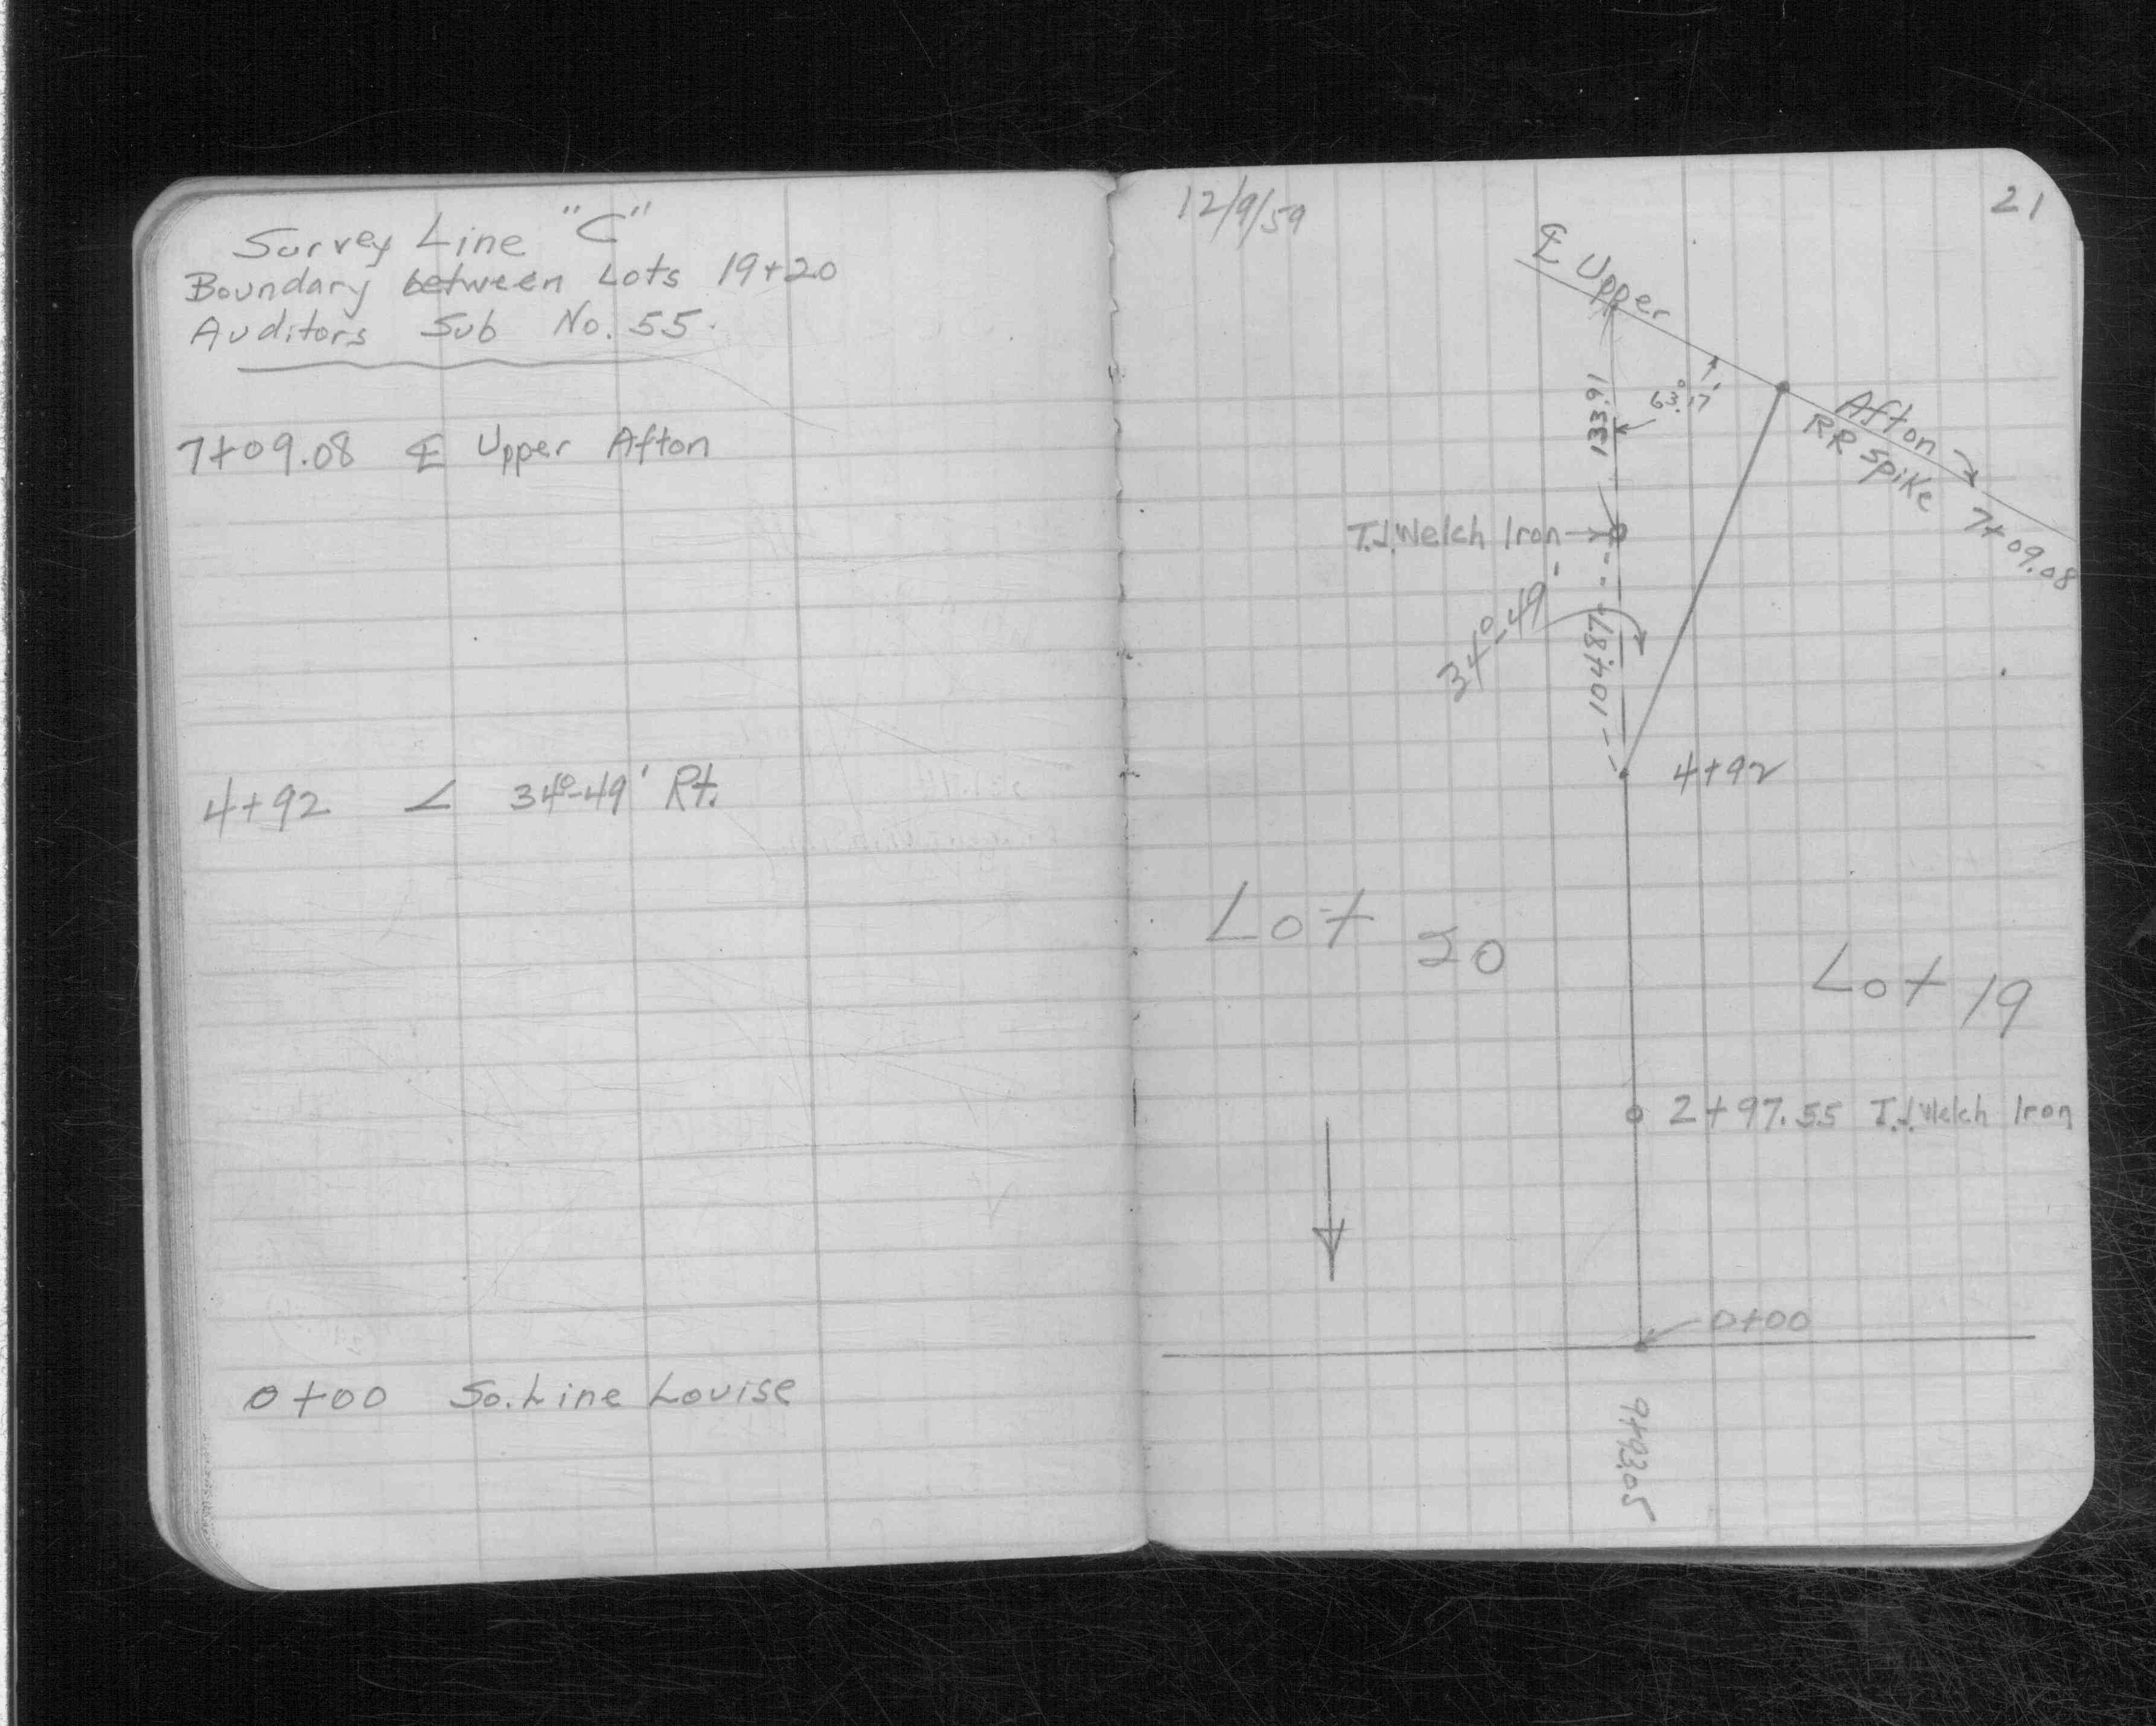 Survey Line "C"
Boundary between Lots 19+20
Auditors Sub No. 55.
7+09.08 ℄ Upper Afton
4+92 ∠ 34°-49' Rt.
0+00 So. Line Louise
12/9/59
21
℄ Upper
Afton
RR Spike 7+09.08
63°17'
133.91
T.J. Welch Iron
34°-49'
104.87
4+92
Lot 20
Lot 19
2+97.55 T.J. Welch Iron
0+00
9+93.05